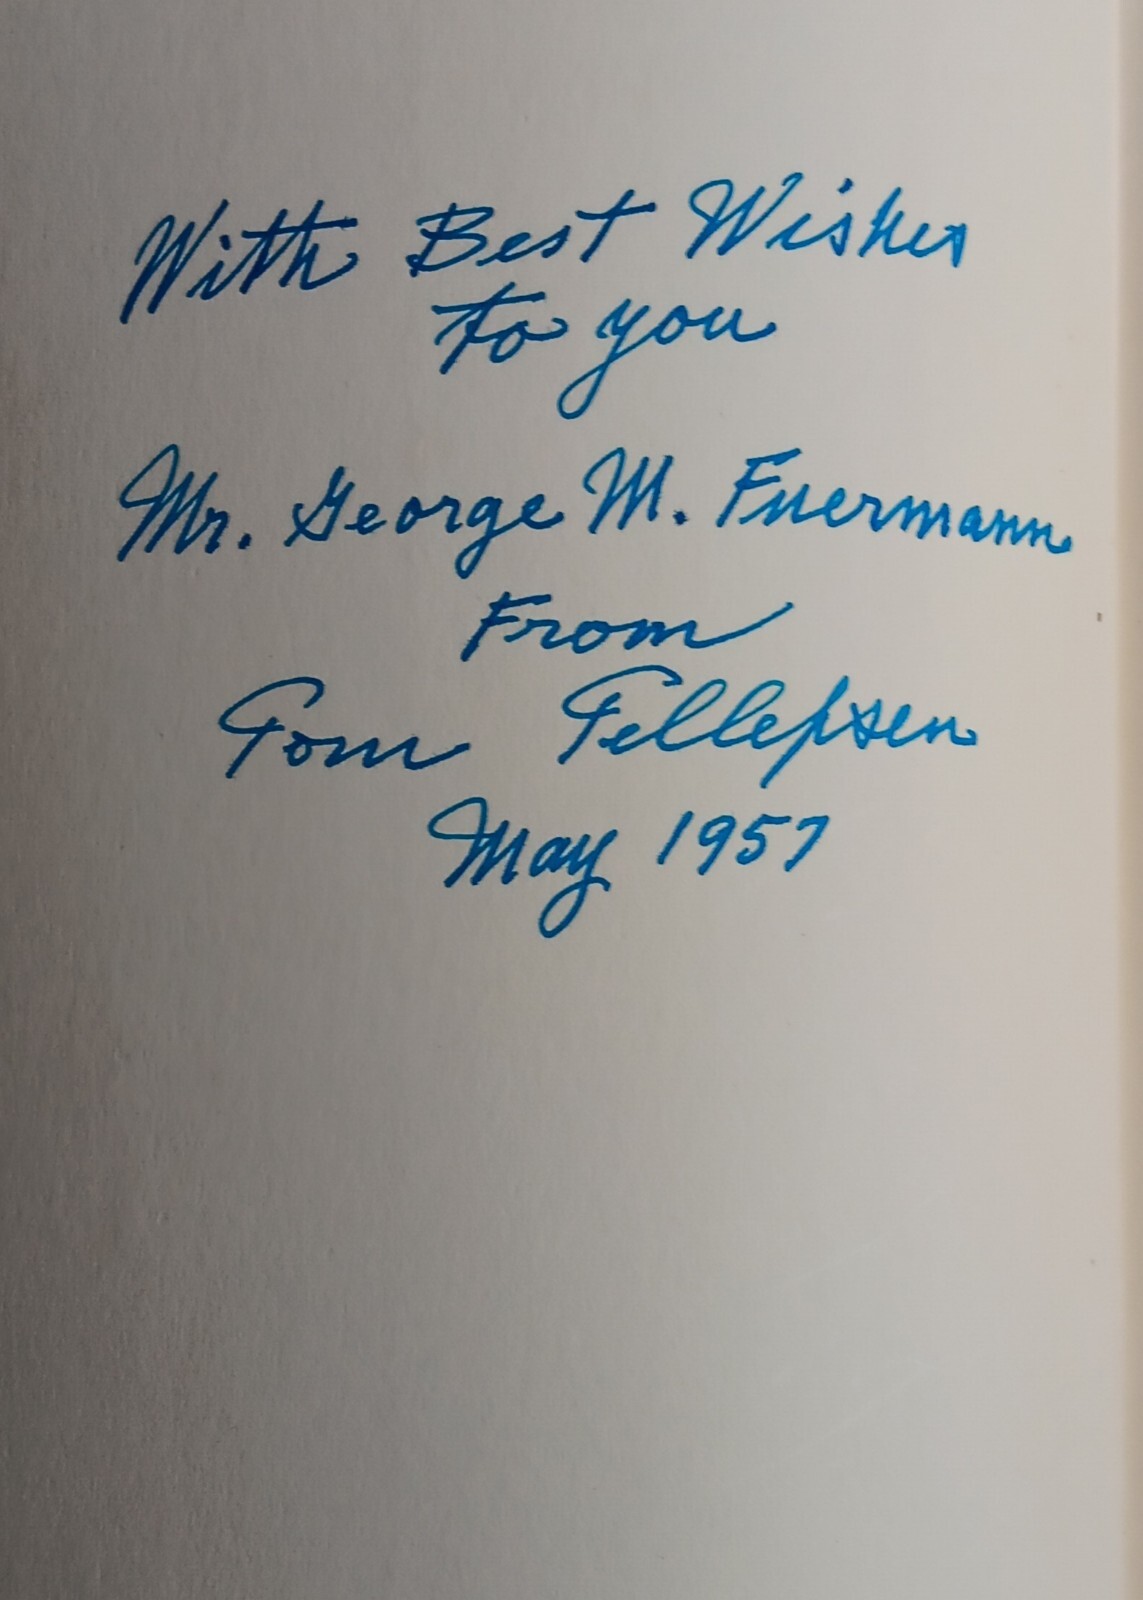 With Best Wishes
to you
Mr. George M. Fuermann
From
Tom Tellepsen
May 1957